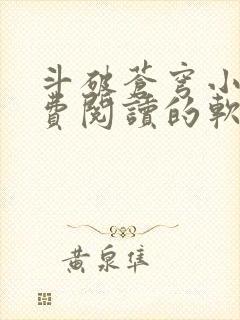 斗破蒼穹小
費閱讀的軟
黃泉隼